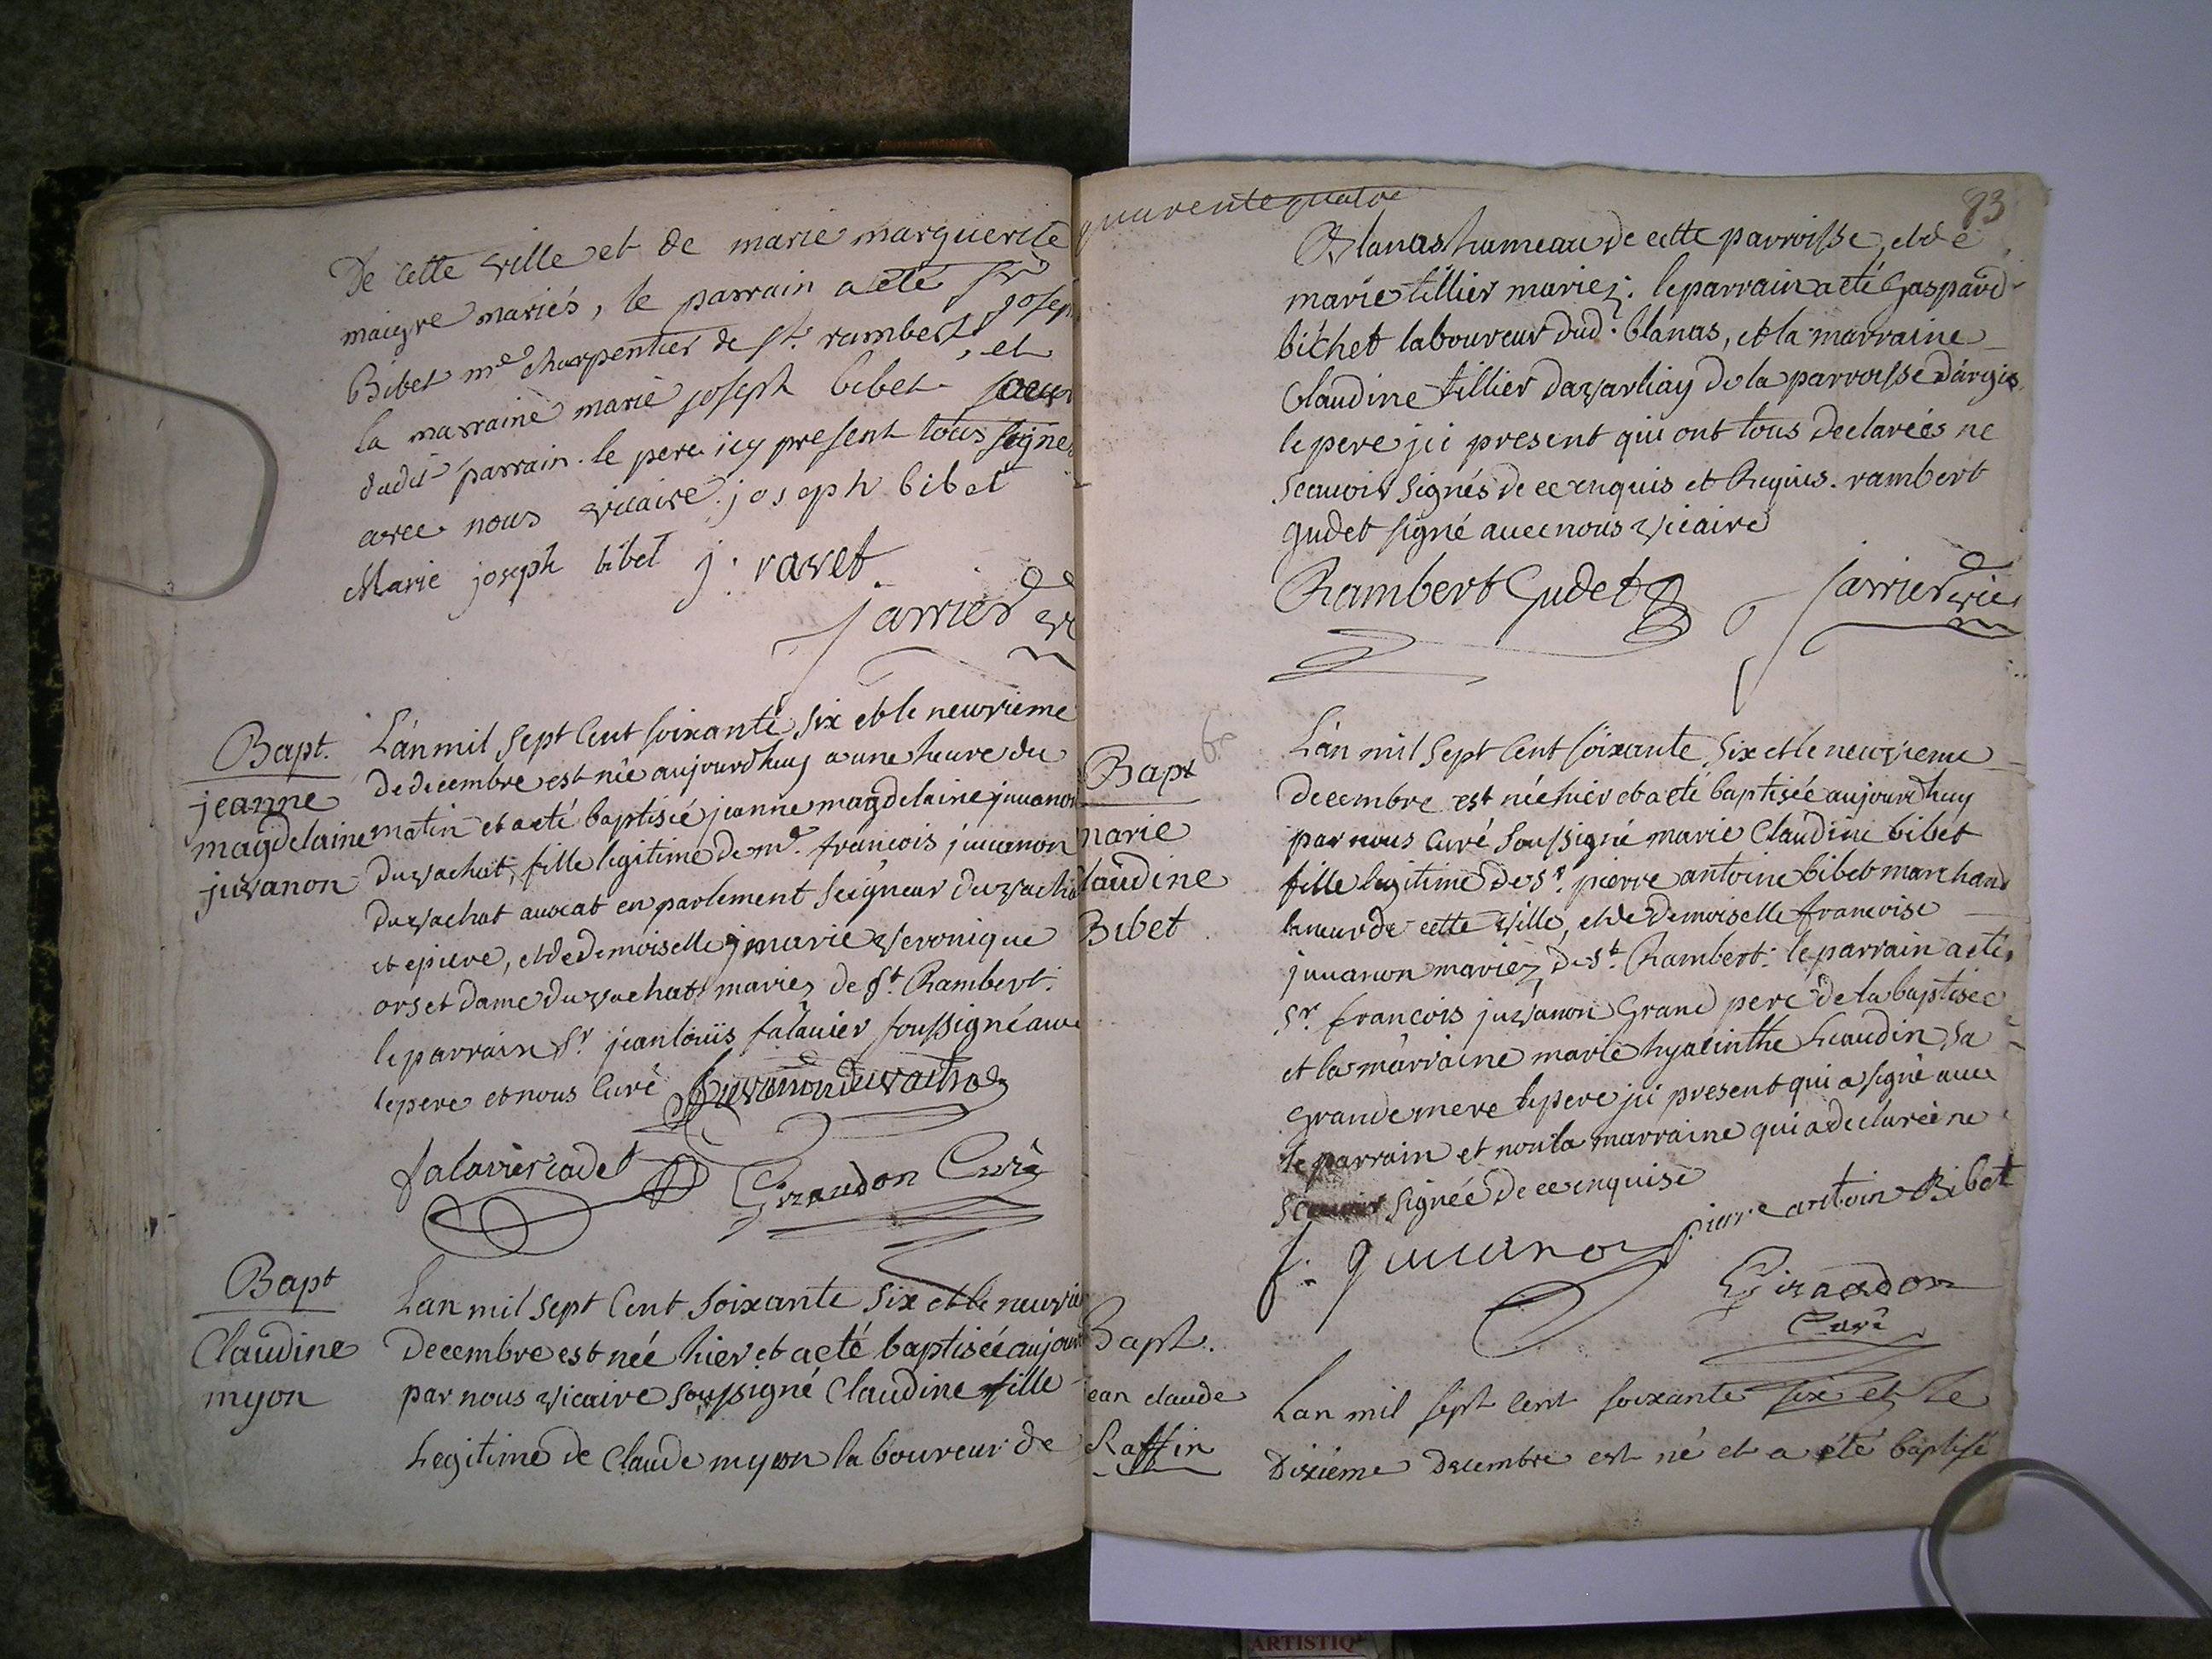 De cette ville et de marie marguerite
maigre mariés, le parrain a eté sr josep
Bibet me charpentier de st. rambert, et
la marraine marie joseph bibet soeur
dudit parrain. le pere icy present tous signe
avec nous vicaire. joseph bibet
Marie joseph bibet j. ravet
jarrier vi
Bapt.
jeanne
magdelaine
juvanon
Lán mil sept Cent soixante six et le neuvieme
de decembre est née aujourdhuy a une heure du
matin et a eté baptisée jeanne magdelaine juuanon
duvachat, fille legitime de me. francois juuanon
duvachat auocat en parlement seigneur duvacha
et epierre, et de demoiselle marie veronique
orset dame duvachat mariez de st. Rambert.
le parrain sr jean louis falauier soussigné auec
le pere et nous Curé Juvanon duvachat
falavier cadet Girandon Curé
Bapt
Claudine
myon
Lan mil sept Cent soixante six et le neuvie
decembre est née hier et a eté baptisée aujour
par nous vicaire soussigné Claudine fille
Legitime de Claude myon laboureur de
quarente quatre
83
Blanas hameau de cette parroisse, et de
marie tillier mariez. le parrain a eté Gaspard
bichet laboureur dud. blanas, et la marraine
Claudine tillier davarliay de la parroisse dárgis
le pere ici present qui ont tous declarées ne
scauoir signés de ce enquis et Requis. rambert
gudet signé auec nous vicaire
Rambert Gudet jarrier vic
Bapt
marie
claudine
Bibet
Lán mil sept Cent soixante six et le neuvieme
decembre est née hier et a eté baptisée aujourdhuy
par nous Curé soussigné marie Claudine bibet
fille legitime de sr. pierre antoine bibet marchand
de cette ville, et de demoiselle francoise
juuanon mariez de st. Rambert. le parrain a eté
sr. francois juvanon Grand pere de la baptisée
et la marraine marie hyacinthe sa
Grande mere le pere ici present qui a signé auec
le parrain et non la marraine qui a declarée ne
scauoir signée de ce enquise
f. juuanon pierre antoin Bibet
Girandon
Curé
Bapt.
jean claude
Raffin
Lan mil sept cent soixante six et le
Dixiéme decembre est né et a été baptisé
ARTISTIQ